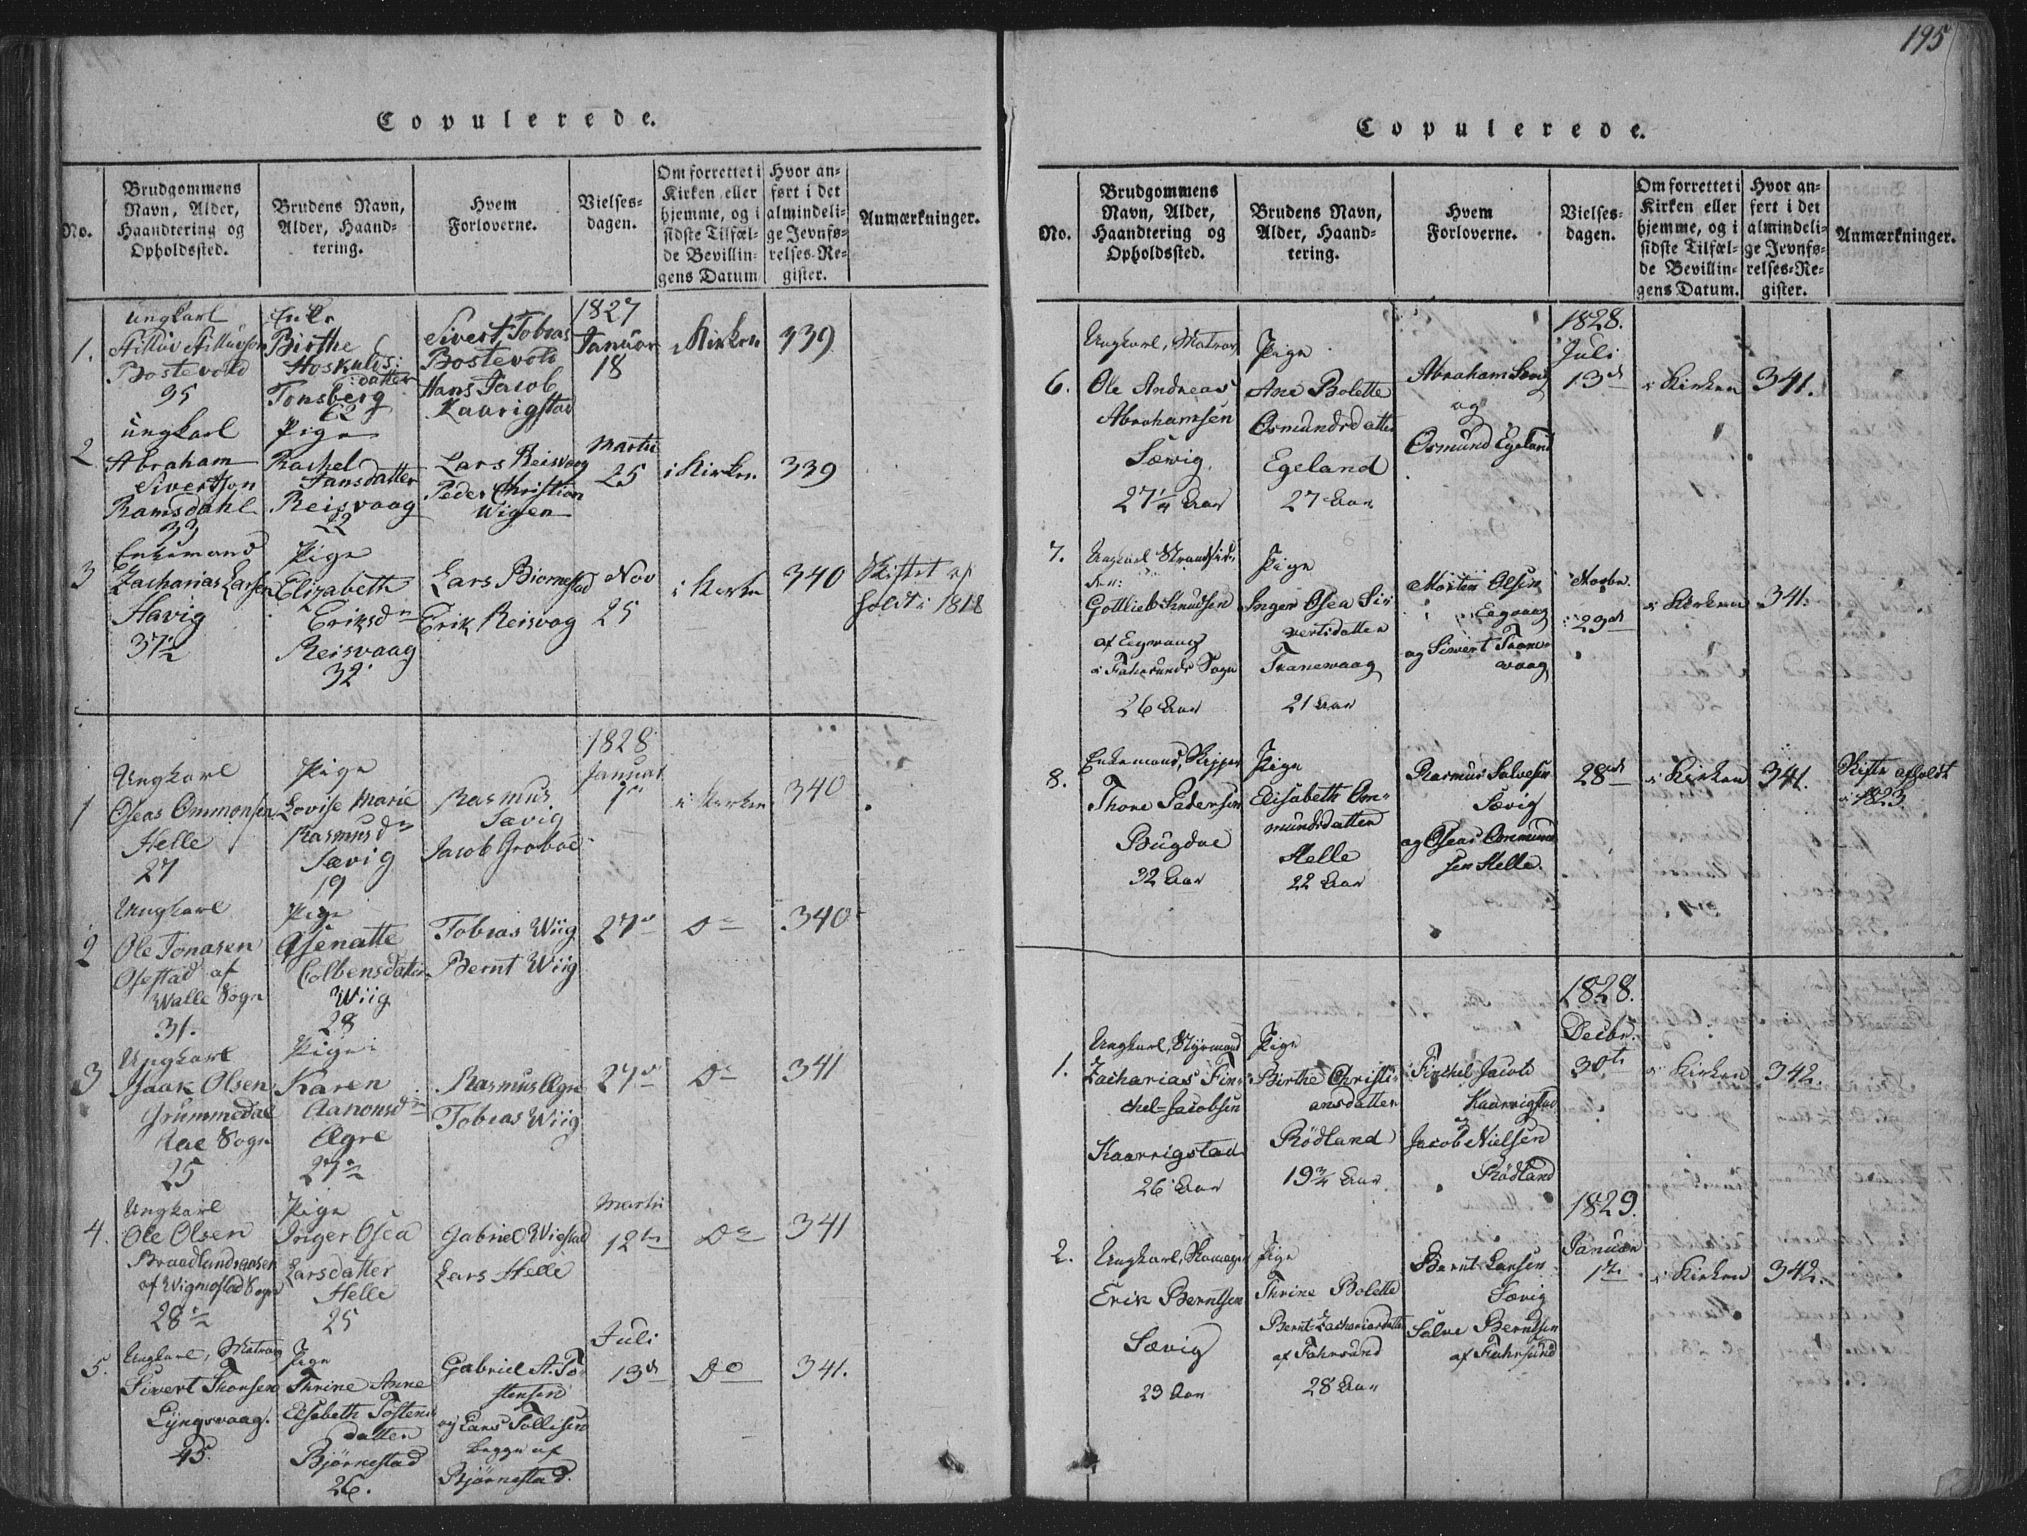 195
Copulerede.
No.
Brudgommens Navn, Alder, Haandtering og Opholdssted.
Brudens Navn, Alder, Haandtering.
Hvem Forloverne.
Vielsesdagen.
Om forrettet i Kirken eller hjemme, og i sidste Tilfælde Bevillingens Datum
Hvor anført i det almindelige Jevnførelses-Register.
Anmærkninger.
1827
1.
Ungkarl
Bostevold
Enke
Birthe
Hoskulds:
datter
Tonsberg
62
Sivert Tobias
Bostevold
Hans Jacob
Kaarigstad
Januar
18
i Kirken
339
2
Ungkarl
Abraham
Sivertson
Ramsdahl
33
Pige
Rachel
Hansdatter
Reisvaag
22
Lars Reisvaag
Peder Christian
Wigen
Martii
25
i Kirken
339
3
Enkemand
Zacharias Larsen
Havig
37½
Pige
Elizabeth
Eriksd
Reisvaag
32
Lars Biornestad
Erik Reisvog
Nov
25
i Kirken
340
Skiftet af
holdt i 1818
1828
1
Ungkarl
Oseas Ommonsen
Helle
27
Pige
Lovise Marie
Rasmusd
Sævig
19
Rasmus
Sævig
Jacob Groboe
Januar
1
i Kirken
340
2
Ungkarl
Ole Jonasen
Osestad af
Walle Sogn
31.
Pige
Asenatte
Colbensdatter
Wiig
28
Tobias Wiig
Bernt Wiig
27
Do
340
3
Ungkarl
Isaak Olsen
Grummedal
Aae Sogn
25
Pige
Karen
Aanonsd
Øgre
27½
Rasmus Øgre
Tobias Wiig
27
Do
341
4.
Ungkarl
Ole Olsen
af Wigmostad Sogn
28½
Pige
Inger Osea
Larsdatter
Helle
25
Gabriel Wiestad
Lars Helle
Martii
12te
Do
341
5.
Ungkarl, Matros
Sivert Thorsen
Lyngsvaag.
45.
Pige
Thrine Anne
Elsebeth Tostens
datter
Bjørnestad
26.
Gabriel A. To-
stensen
og Lars Tollisen
begge af
Bjørnestad.
Juli
13d
Do
341.
Copulerede.
No.
Brudgommens Navn, Alder, Haandtering og Opholdssted.
Brudens Navn, Alder, Haandtering.
Hvem Forloverne.
Vielsesdagen.
Om forrettet i Kirken eller hjemme, og i sidste Tilfælde Bevillingens Datum.
Hvor anført i det almindelige Jevnførelses-Register.
Anmærkninger.
1828.
6.
Ungkarl, Matros
Ole Andreas
Abrahamsen
Sævig.
27¼ Aar
Pige
Ane Bolette
Osmundsdatter
Egeland
27 Aar
og
Osmund Egeland
Juli
13d
i Kirken
341.
7.
Gottlieb Knudsen
af Eegvaag
i Fahrsunds Sogn
26 Aar
Pige
Inger Osea Si-
vertsdatter
Tranevaag
21 Aar
Morten Olsen
Eegvaag
og Sivert Trane-
vaag
Novbr.
23d
i Kirken
341.
8.
Enkemand, Skipper
Thore Pedersen
Bugdoe
32 Aar
Pige
Elisabeth Om-
mundsdatter
Helle
22 Aar
Rasmus Salvesen
Sævig
og Oseas Ommund
sen Helle.
28d
i Kirken
341.
Skifte afholdt
i 1823.
1828.
1.
Ungkarl, Styrmand
Zacharias Fin-
chel-Jacobsen
Kaarrigstad
26 Aar
Pige
Birthe Christi-
ansdatter
Rödland
19¾ Aar
Finchel Jacob
Kaarrigstad
og
Jacob Nielsen
Rödland
Decbr.
30te
i Kirken
342.
1829.
2.
Erik Berntsen
Sævig
23 Aar
Pige
Thrine Bolette
Bernt-Zachariasdatter
af Fahrsund
28 Aar
Bernt Larsen
Sævig
Salve Berntsen
af Fahrsund
Januar
1te
i Kirken
342.